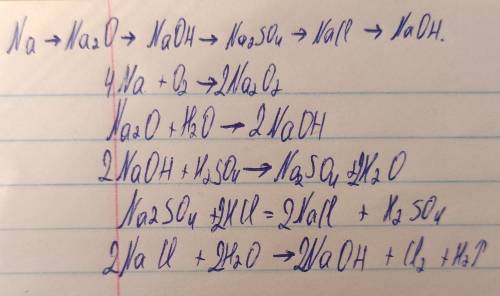 Na → Na₂O → NaOH → Na₂SO₄ → NaCl → NaOH.
4Na + O₂ → 2Na₂O₂
Na₂O + H₂O → 2NaOH
2NaOH + H₂SO₄ → Na₂SO₄ + 2H₂O
Na₂SO₄ + 2HCl = 2NaCl + H₂SO₄
2NaCl + 2H₂O → 2NaOH + Cl₂ + H₂↑